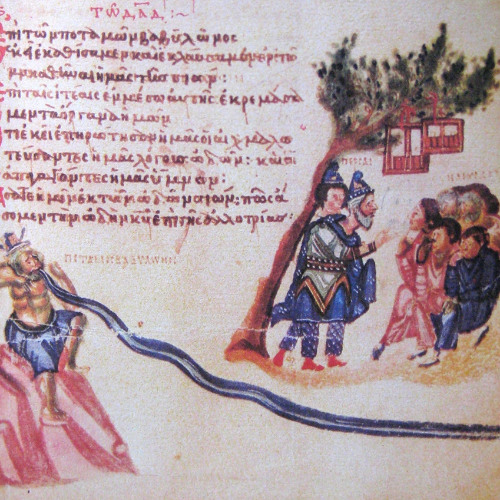 ΤΩ ΔΑΔ:~
Ἐπὶ τῶν ποταμῶν βαβυλῶνος
ἐκεῖ ἐκαθίσαμεν καὶ ἐκλαύσαμεν
μνησθῆναι ἡμᾶς τῆς σιών:
ἐπὶ ταῖς ἰτέαις ἐν μέσω αὐτῆς ἐκρεμάσα
μεν τὰ ὄργανα ἡμῶν
ὅτι ἐκεῖ ἐπηρώτησαν ἡμᾶς οἱ αἰχμαλω
τεύσαντες ἡμᾶς λόγους ὠδῶν: καὶ οἱ
ἀπαγαγόντες ἡμᾶς ὕμνον:
ἄσατε ἡμῖν ἐκ τῶν ὠδῶν σιών: πῶς ἄ
σωμεν τὴν ὠδὴν κυ ἐπὶ γῆς ἀλλοτρίας: